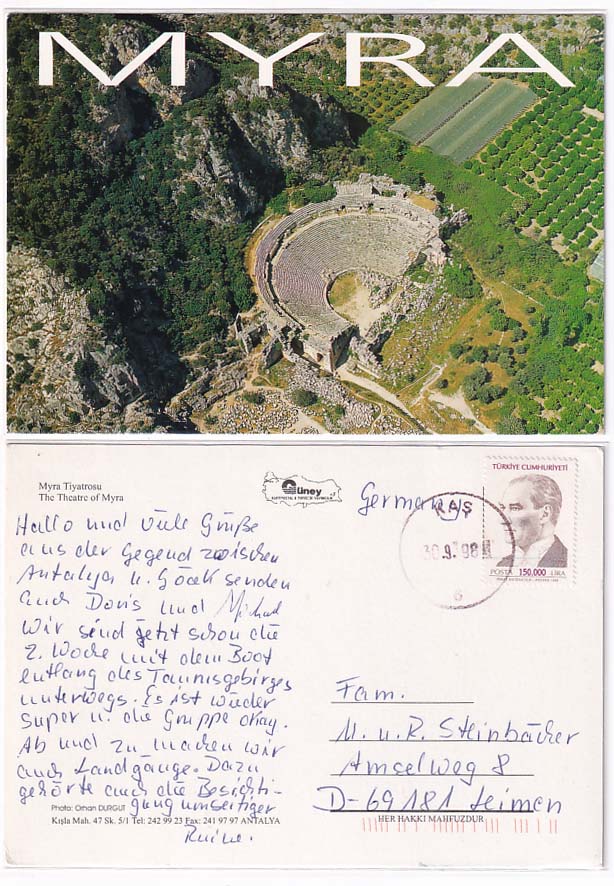 MYRA
Myra Tiyatrosu
The Theatre of Myra
Güney
KARTPOSTAL & TURİSTİK YAYINCILIK
Germany
KAŞ
30.9.98
TÜRKİYE CUMHURİYETİ
POSTA 150.000 LİRA
Hallo und viele Grüße
aus der Gegend zwischen
Antalya u. Göcek senden
auch Doris und Michael
Wir sind jetzt schon die
2. Woche mit dem Boot
entlang des Taurusgebirges
unterwegs. Es ist wieder
super u. die Gruppe okay.
Ab und zu machen wir
auch Landgänge. Dazu
gehörte auch die Besichti-
gung umseitiger
Ruine.
Photo: Orhan DURGUT
Kışla Mah. 47 Sk. 5/1 Tel: 242 99 23 Fax: 241 97 97 ANTALYA
Fam.
M. u. R. Steinbächer
Amselweg 8
D-69181 Leimen
HER HAKKI MAHFUZDUR